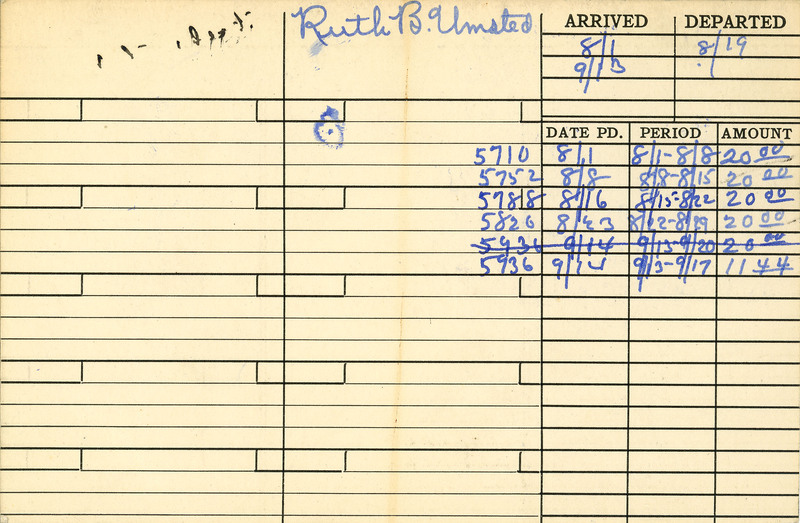 Ruth B. Umsted
ARRIVED DEPARTED
8/1 8/19
9/13
DATE PD. PERIOD AMOUNT
5710 8/1 8/1-8/8 20 00
5752 8/8 8/8-8/15 20 00
5788 8/16 8/15-8/22 20 00
5820 8/23 8/22-8/29 20 00
5936 9/14 9/13-9/20 20 00
5936 9/14 9/13-9/17 11 44